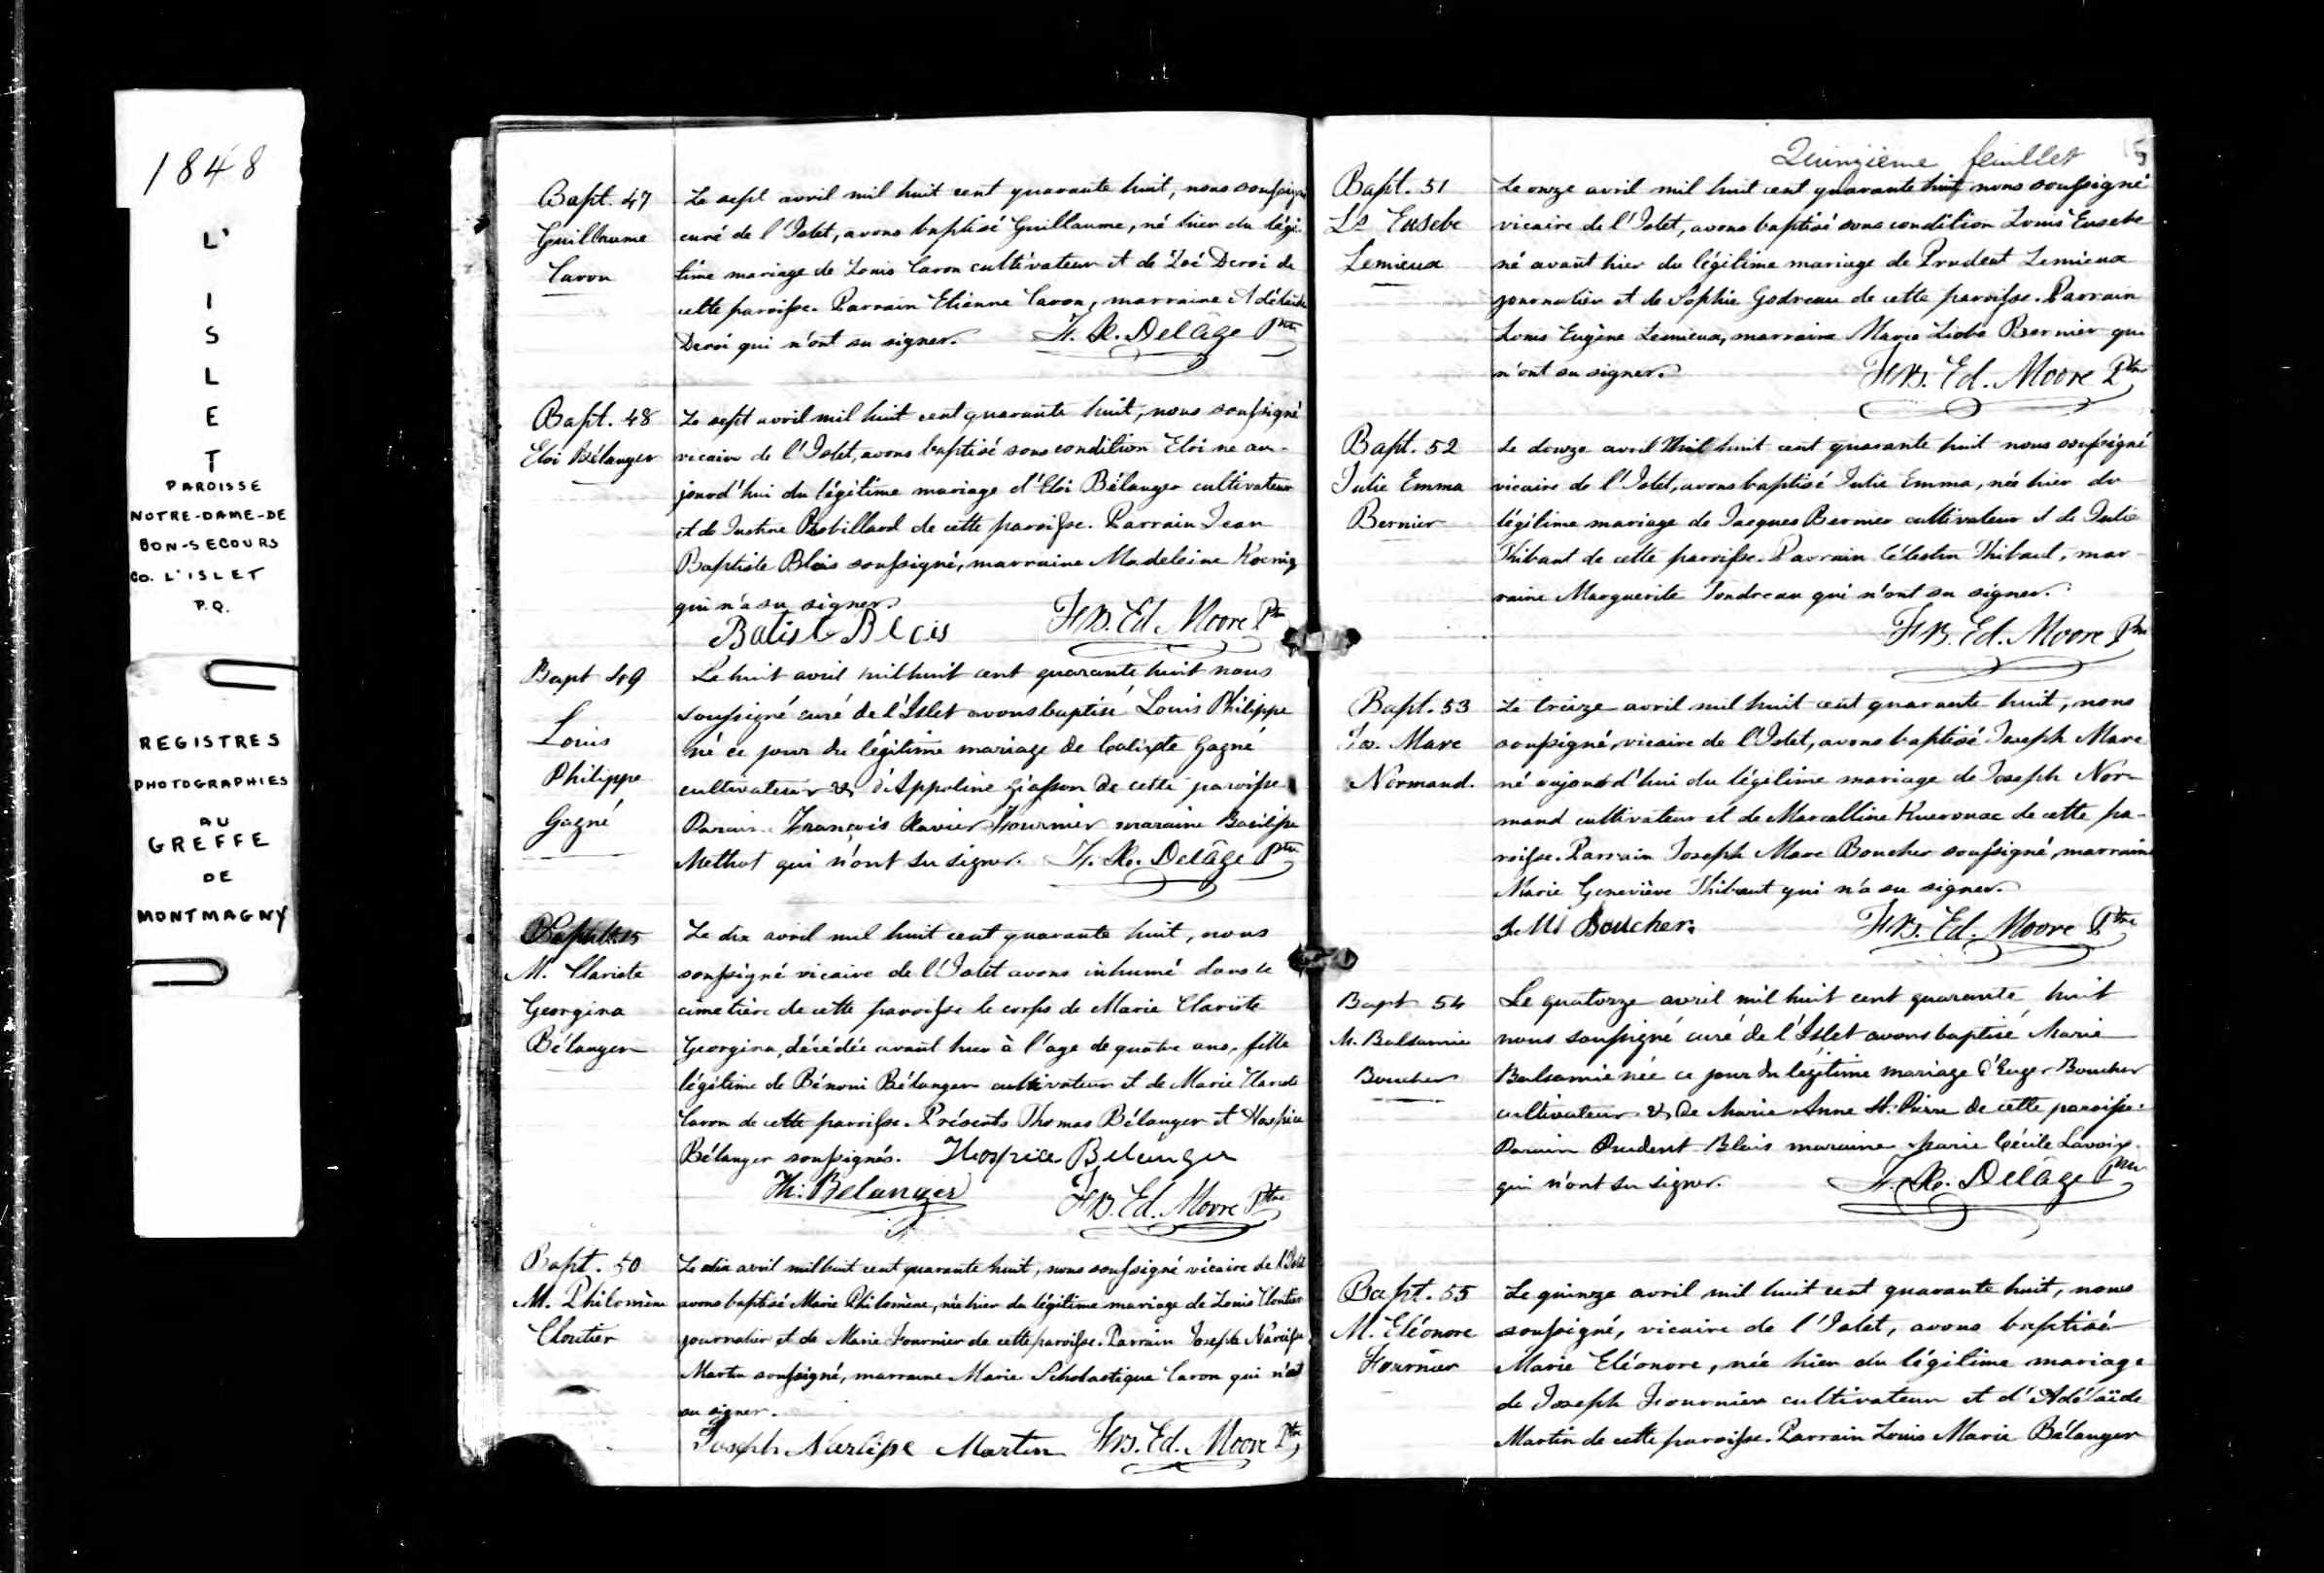 1848
L'
I
S
L
E
T
PAROISSE
NOTRE-DAME-DE
BON-SECOURS
CO. L'ISLET
P.Q.
REGISTRES
PHOTOGRAPHIES
AU
GREFFE
DE
MONTMAGNY
Bapt. 47
Guillaume
Caron
Le sept avril mil huit cent quarante huit, nous soussigné
curé de l'Islet, avons baptisé Guillaume, né hier du légi-
time mariage de Louis Caron cultivateur et de Zoé Deroi de
cette paroisse. Parrain Etienne Caron, marraine Adélaïde
Deroi qui n'ont su signer. F. X. Delâge Ptre
Bapt. 48
Eloi Bélanger
Le sept avril mil huit cent quarante huit, nous soussigné
vicaire de l'Islet, avons baptisé sous condition Eloi né au-
jourd'hui du légitime mariage d'Eloi Bélanger cultivateur
et de Justine Robillard de cette paroisse. Parrain Jean
Baptiste Blais soussigné, marraine Madeleine Koenig
qui n'a su signer.
Batist Blais Frs. Ed. Moore Ptre
Bapt 49
Louis
Philippe
Gagné
Le huit avril mil huit cent quarante huit nous
soussigné curé de l'Islet avons baptisé Louis Philippe
né ce jour du légitime mariage de Calixte Gagné
cultivateur & d'Appoline Giasson de cette paroisse
Parain François Xavier Fournier maraine Basilisse
Methot qui n'ont su signer. F. X. Delâge Ptre
M. Clariste
Georgina
Bélanger
Le dix avril mil huit cent quarante huit, nous
soussigné vicaire de l'Islet avons inhumé dans le
cimetière de cette paroisse le corps de Marie Clariste
Georgina, décédée avant hier à l'age de quatre ans, fille
légitime de Bénoni Bélanger cultivateur et de Marie Clariste
Caron de cette paroisse. Présents Thomas Bélanger et Hospice
Bélanger soussignés. Hospice Belanger
Th: Belanger Frs. Ed. Moore Ptre
Bapt. 50
M. Philomène
Cloutier
Le dix avril mil huit cent quarante huit, nous soussigné vicaire de l'Islet
avons baptisé Marie Philomène, née hier du légitime mariage de Louis Cloutier
journalier et de Marie Fournier de cette paroisse. Parrain Joseph Narcisse
Martin soussigné, marraine Marie Scholastique Caron qui n'a
su signer.
Joseph Narcisse Martin Frs. Ed. Moore Ptre
Quinzième feuillet
Bapt. 51
Ls Eusebe
Lemieux
Le onze avril mil huit cent quarante huit nous soussigné
vicaire de l'Islet, avons baptisé sous condition Louis Eusebe
né avant hier du légitime mariage de Prudent Lemieux
journalier et de Sophie Godreau de cette paroisse. Parrain
Louis Eugène Lemieux, marraine Marie Bernier qui
n'ont su signer. Frs. Ed. Moore Ptre
Bapt. 52
Julie Emma
Bernier
Le douze avril mil huit cent quarante huit nous soussigné
vicaire de l'Islet, avons baptisé Julie Emma, née hier du
légitime mariage de Jacques Bernier cultivateur et de Julie
Thibaut de cette paroisse. Parrain Célestin Thibaut, mar-
raine Marguerite Tondreau qui n'ont su signer.
Frs. Ed. Moore Ptre
Bapt. 53
Jos. Marc
Normand.
Le treize avril mil huit cent quarante huit, nous
soussigné, vicaire de l'Islet, avons baptisé Joseph Marc
né aujourd'hui du légitime mariage de Joseph Nor-
mand cultivateur et de Marcelline Kuerouac de cette pa-
roisse. Parrain Joseph Marc Boucher soussigné, marraine
Marie Geneviève Thibaut qui n'a su signer.
J. M. Boucher Frs. Ed. Moore Ptre
Bapt 54
M. Balsamie
Boucher
Le quatorze avril mil huit cent quarante huit
nous soussigné curé de l'Islet avons baptisé Marie
Balsamie née ce jour du légitime mariage d'Euger Boucher
cultivateur & de Marie Anne St. Pierre de cette paroisse.
Parain Prudent Blais maraine Marie Cécile Lavoix
qui n'ont su signer. F. X. Delâge Ptre
Bapt. 55
M. Eléonore
Fournier
Le quinze avril mil huit cent quarante huit, nous
soussigné, vicaire de l'Islet, avons baptisé
Marie Eléonore, née hier du légitime mariage
de Joseph Fournier cultivateur et d'Adélaïde
Martin de cette paroisse. Parrain Louis Marie Bélanger